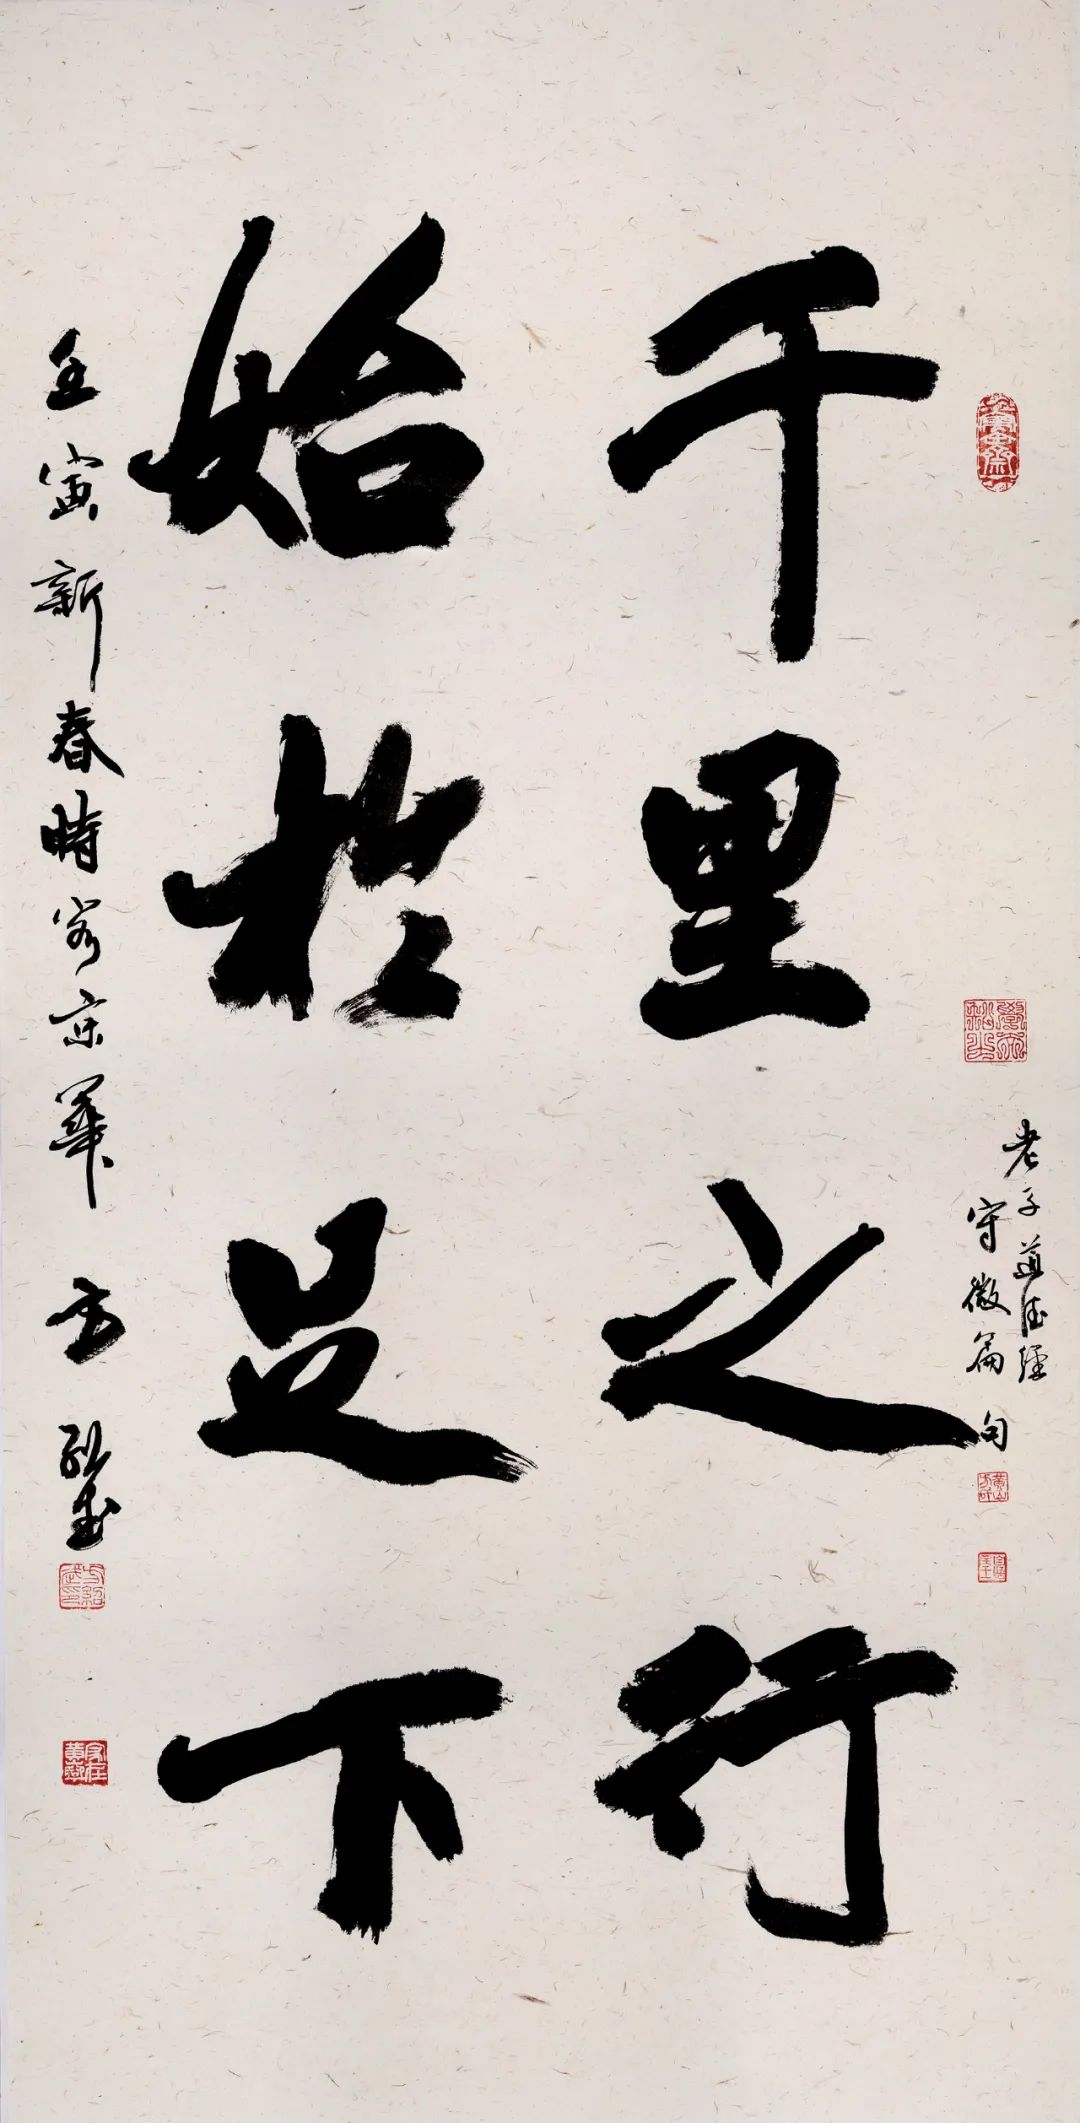 千里之行
始於足下
老子道德經
守微篇句
壬寅新春時客京華
方紹武